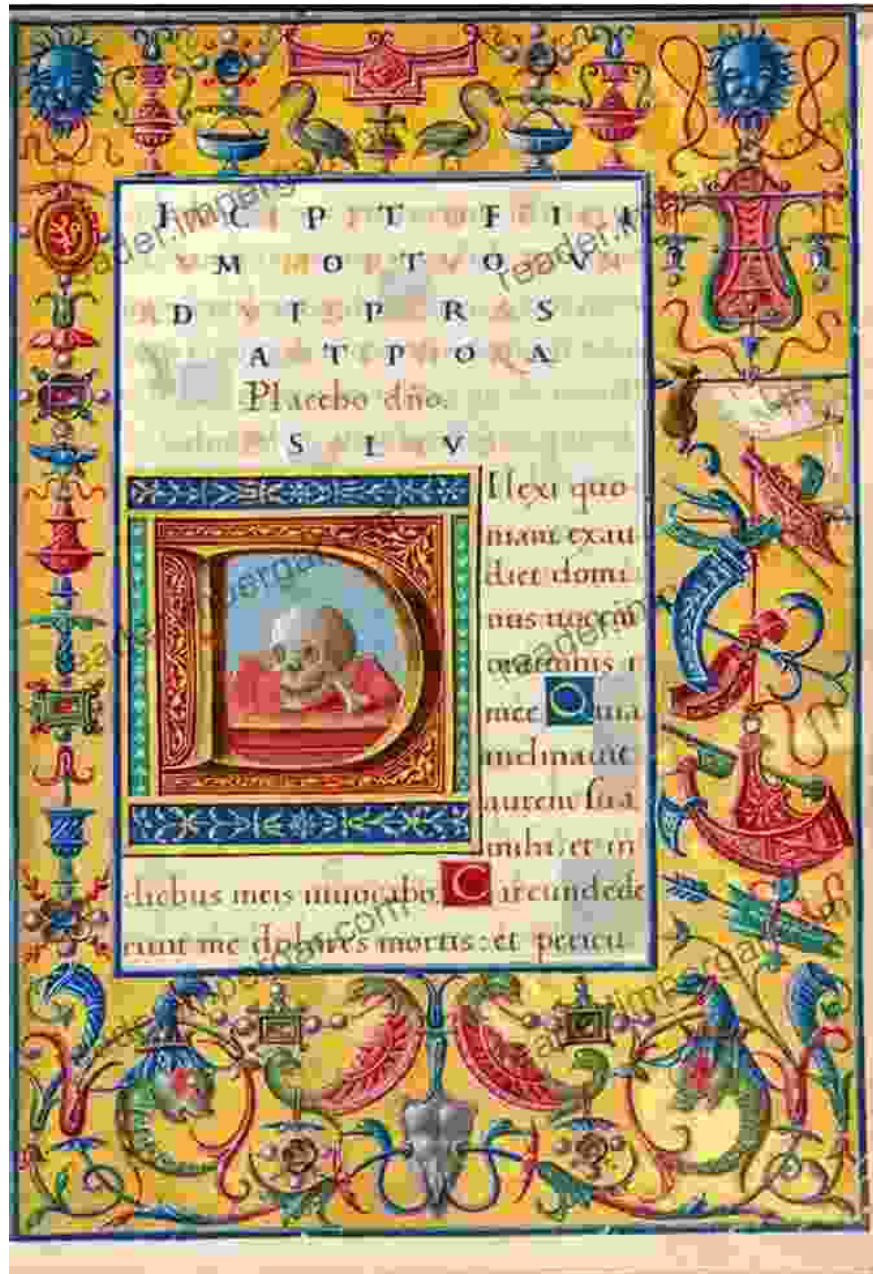 I C P T F I I
M O T O V
D I P R S
A T P O A
Placebo dño.
S L V
DIlexi quo
niam exau
diet domi
nus uocem
orationis
mee Quia
inclinauit
aurem sua
mihi: et in
diebus meis inuocabo. Circundede
runt me dolores mortis: et pericu